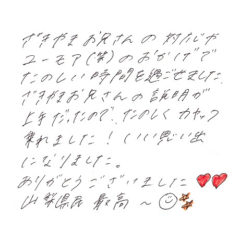 できやまお兄さんの的たか
ユーモア(笑)のおかげで
たのしい時間を過ごせました
できやまお兄さんの説明が
上手だったので、たのしくカヤック
乗れました！いい思い出
になりました。
ありがとうございました❤❤
山梨県民 最高〜☺